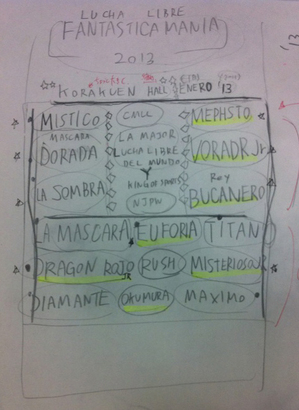 LUCHA LIBRE
FANTASTICA MANIA
2013
KORAKUEN HALL ENERO '13
MISTICO CMLL MEPHSTO
MASCARA DORADA LA MAJOR LUCHA LIBRE DEL MUNDO VORADR Jr
Y
LA SOMBRA KING OF SPORTS NJPW Rey BUCANERO
LA MASCARA EUFORIA TITAN
DRAGON ROJO JR RUSH MISTERIOSO JR
DIAMANTE OKUMURA MAXIMO
'13